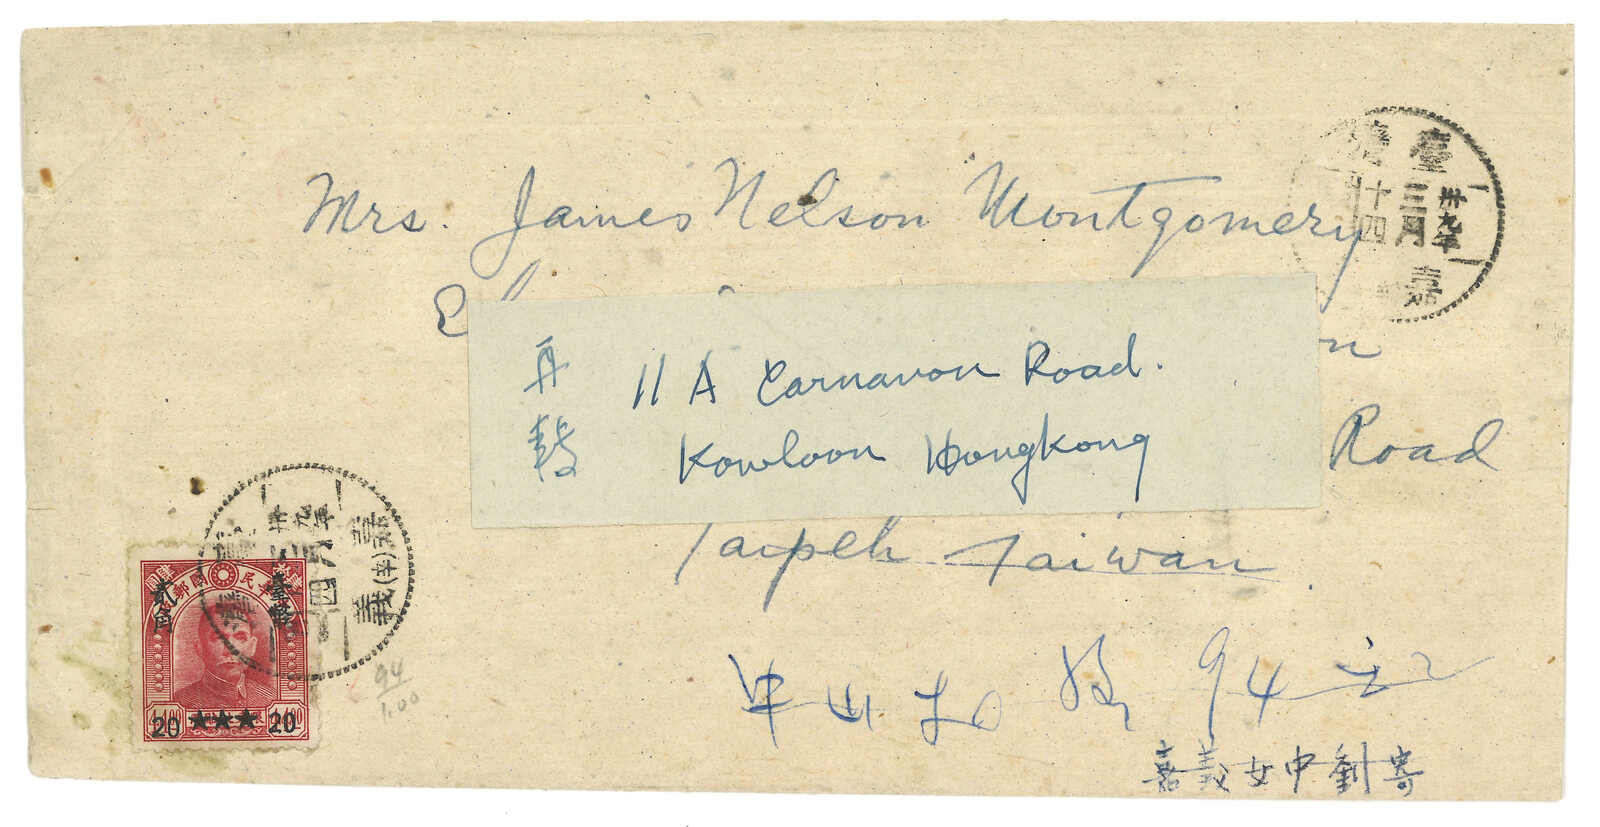 Mrs. James Nelson Montgomery
再 11 A Carnavon Road.
轉 Kowloon Hongkong
Road
Taipeh Taiwan.
中山
94
嘉義女中劉寄
臺灣
卅九年
三月
十四
嘉
臺灣
卅九年
月
四
嘉義(辛)
20 ★★★ 20
94
1.00